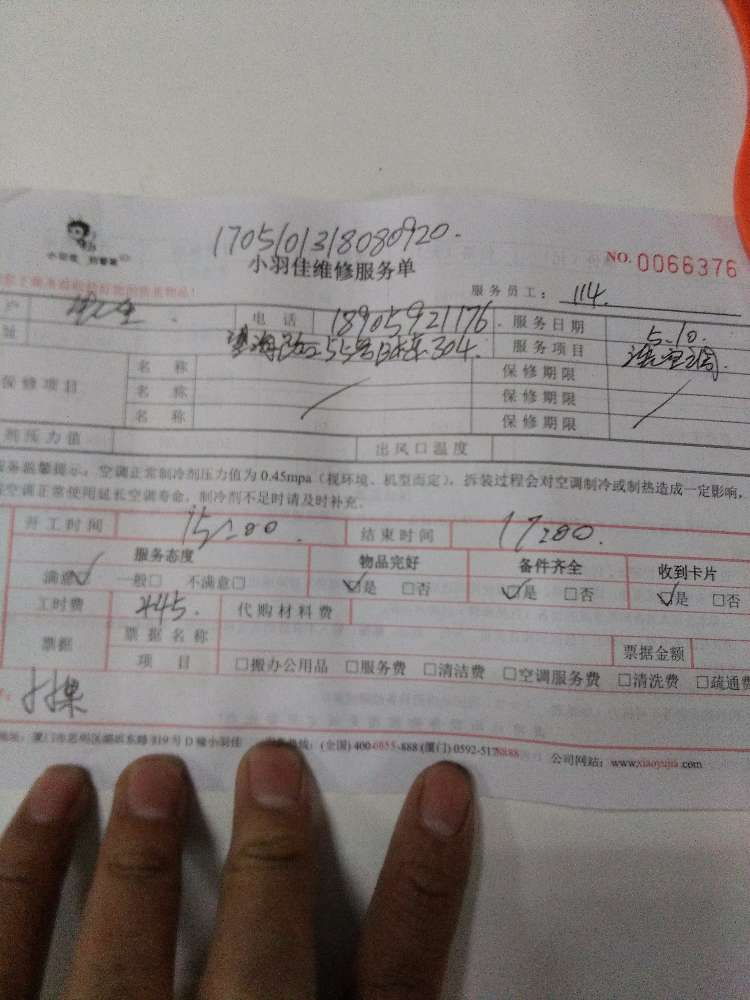 1705101318080920.
小羽佳 刘誉莱
小羽佳维修服务单
NO. 0066376
服务员工: 114.
户
电话 18905921176. 服务日期 5.10.
望海路55号B栋304. 服务项目 洗空调.
保修项目 名称 保修期限
名称 保修期限
名称 保修期限
剂压力值 出风口温度
服务温馨提示:空调正常制冷剂压力值为0.45mpa(视环境、机型而定),拆装过程会对空调制冷或制热造成一定影响,
空调正常使用延长空调寿命,制冷剂不足时请及时补充.
开工时间 15:00 结束时间 17:00.
服务态度 物品完好 备件齐全 收到卡片
满意☑ 一般□ 不满意□ ☑是 □否 ☑是 □否 ☑是 □否
工时费 ¥45. 代购材料费
票据 票据名称 票据金额
项目 □搬办公用品 □服务费 □清洁费 □空调服务费 □清洗费 □疏通费
地址:厦门市思明区湖滨东路319号D楼小羽佳 服务热线:(全国)400-0055-888(厦门)0592-5178888 公司网站:www.xiaoyujia.com